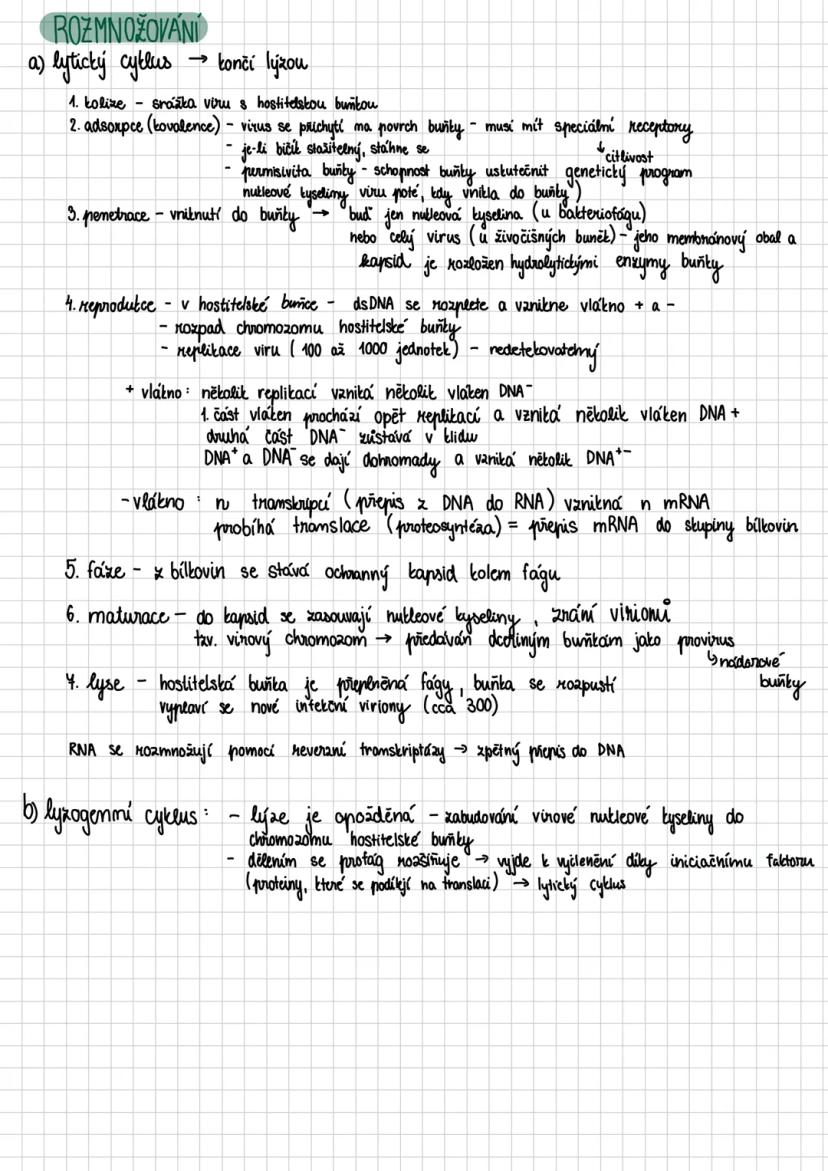 ROZMNOŽOVÁNÍ
a) lytický cyklus → končí lýzou
1. kolize - srážka viru s hostitelskou buňkou
2. adsorpce (kovalence) - virus se přichytí na povrch buňky - musí mít speciální receptory
- je-li bičík stažitelný, stáhne se
↓ citlivost
- permisivita buňky - schopnost buňky uskutečnit genetický program
nukleové kyseliny viru poté, kdy vnikla do buňky)
3. penetrace - vniknutí do buňky → buď jen nukleová kyselina (u bakteriofágu)
nebo celý virus (u živočišných buněk) - jeho membránový obal a
kapsid je rozložen hydrolytickými enzymy buňky
4. reprodukce - v hostitelské buňce - dsDNA se rozplete a vznikne vlákno + a -
- rozpad chromozomu hostitelské buňky
- replikace viru (100 až 1000 jednotek) - nedetekovatelný
+ vlákno: několik replikací vzniká několik vláken DNA⁻
1. část vláken prochází opět replikací a vzniká několik vláken DNA +
druhá část DNA⁻ zůstává v klidu
DNA⁺ a DNA⁻ se dají dohromady a vzniká několik DNA⁺⁻
- vlákno: n transkripcí (přepis z DNA do RNA) vznikná n mRNA
probíhá translace (proteosyntéza) = přepis mRNA do skupiny bílkovin
5. fáze - z bílkovin se stává ochranný kapsid kolem fágu
6. maturace - do kapsid se zasouvají nukleové kyseliny, zrání virionů
tzv. virový chromozom → předáván dceřiným buňkám jako provirus
↳ nádorové
buňky
7. lyse - hostitelská buňka je přeplněná fágy, buňka se rozpustí
vyplaví se nové infekční viriony (cca 300)
RNA se rozmnožují pomocí reverzní transkriptázy → zpětný přepis do DNA
b) lyzogenní cyklus: - lýze je opožděná - zabudování virové nukleové kyseliny do
chromozomu hostitelské buňky
- dělením se profág rozšiřuje → vyjde k vyčlenění díky iniciačnímu faktoru
(proteiny, které se podílejí na translaci) → lytický cyklus